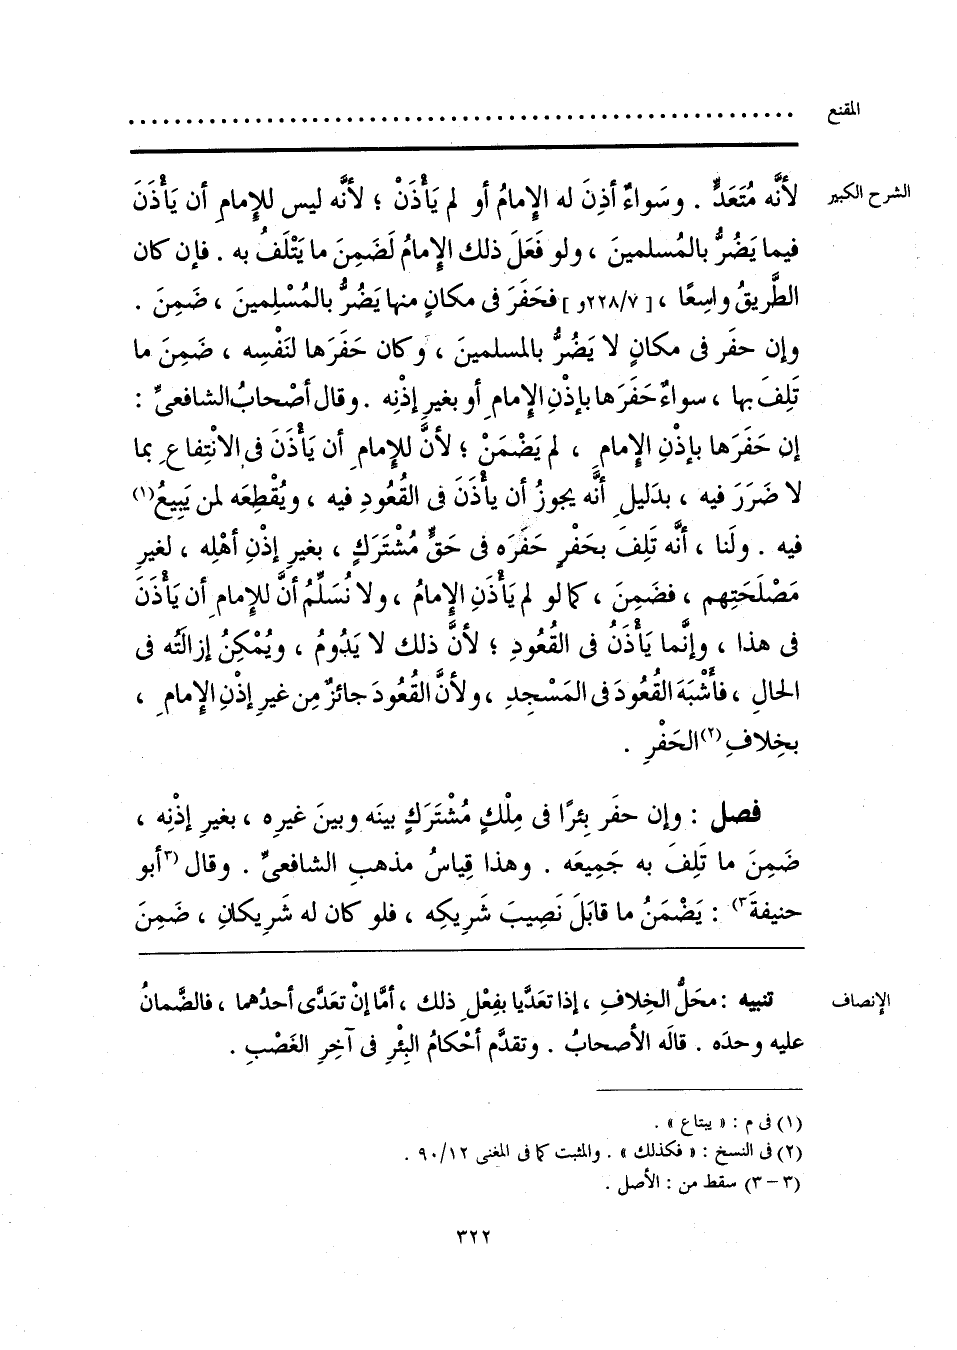 المقنع ................................................
الشرح الكبير لأنَّه مُتَعَدٍّ . وسَواءٌ أذِنَ له الإِمامُ أو لم يَأْذَنْ ؛ لأنَّه ليس للإِمامِ أن يَأْذَنَ
فيما يَضُرُّ بالمُسلمينَ ، ولو فَعَلَ ذلك الإِمامُ لَضَمِنَ ما يَتْلَفُ به . فإن كان
الطَّريقُ واسِعًا ، [ ٢٢٨/٧و ] فحَفَرَ فى مكانٍ منها يَضُرُّ بالمُسْلِمينَ ، ضَمِنَ .
وإن حفَر فى مكانٍ لا يَضُرُّ بالمسلمينَ ، وكان حَفَرَها لنَفْسِه ، ضَمِنَ ما
تَلِفَ بها ، سواءٌ حَفَرَها بإذْنِ الإِمامِ أو بغيرِ إذْنِه . وقال أصْحابُ الشافعىِّ :
إن حَفَرَها بإذْنِ الإِمامِ ، لم يَضْمَنْ ؛ لأنَّ للإِمامِ أن يَأْذَنَ فى الانْتِفاعِ بما
لا ضَرَرَ فيه ، بدَليلِ أنَّه يجوزُ أن يأْذَنَ فى القُعُودِ فيه ، ويُقْطِعَه لمن يَبِيعُ(١)
فيه . ولَنا ، أنَّه تَلِفَ بحَفْرٍ حَفَرَه فى حَقٍّ مُشْتَرَكٍ ، بغيرِ إذْنِ أهْلِه ، لغيرِ
مَصْلَحَتِهم ، فضَمِنَ ، كما لو لم يَأْذَنِ الإِمامُ ، ولا نُسَلِّمُ أنَّ للإِمامِ أن يَأْذَنَ
فى هذا ، وإنَّما يَأْذَنُ فى القُعُودِ ؛ لأنَّ ذلك لا يَدُومُ ، ويُمْكِنُ إزالَتُه فى
الحالِ ، فأَشْبَهَ القُعُودَ فى المَسْجِدِ ، ولأنَّ القُعُودَ جائزٌ مِن غيرِ إذْنِ الإِمامِ ،
بخِلافِ(٢) الحَفْرِ .
فصل : وإن حفَر بِئرًا فى مِلْكٍ مُشْتَرَكٍ بينَه وبينَ غيرِه ، بغيرِ إذْنِه ،
ضَمِنَ ما تَلِفَ به جَمِيعَه . وهذا قِياسُ مذهبِ الشافعىِّ . وقال (٣أبو
حنيفةَ٣) : يَضْمَنُ ما قابَلَ نَصِيبَ شَرِيكِه ، فلو كان له شَرِيكانِ ، ضَمِنَ
الإنصاف تنبيه : محَلُّ الخِلافِ ، إذا تعَدَّيا بفِعْلِ ذلك ، أمَّا إنْ تعَدَّى أحدُهما ، فالضَّمانُ
عليه وحدَه . قالَه الأصحابُ . وتقدَّم أحْكامُ البِئْرِ فى آخِرِ الغَصْبِ .
(١) فى م : « يبتاع » .
(٢) فى النسخ : « فكذلك » . والمثبت كما فى المغنى ٩٠/١٢ .
(٣ – ٣) سقط من : الأصل .
٣٢٢